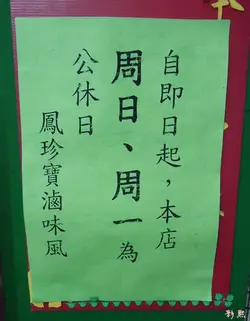 自即日起，本店
周日、周一為
公休日
鳳珍寶滷味風